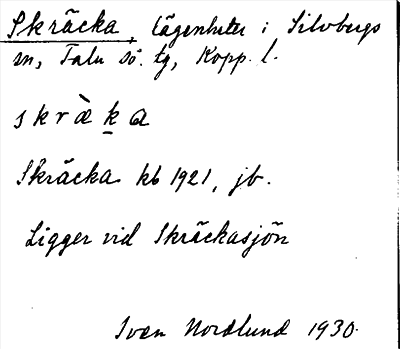 Skräcka, lägenheter i Silvbergs
sn, Falu sö. tg, Kopp. l.
skrὰk̠a
Skräcka kb 1921, jb.
Ligger vid Skräckasjön
Sven Nordlund 1930.